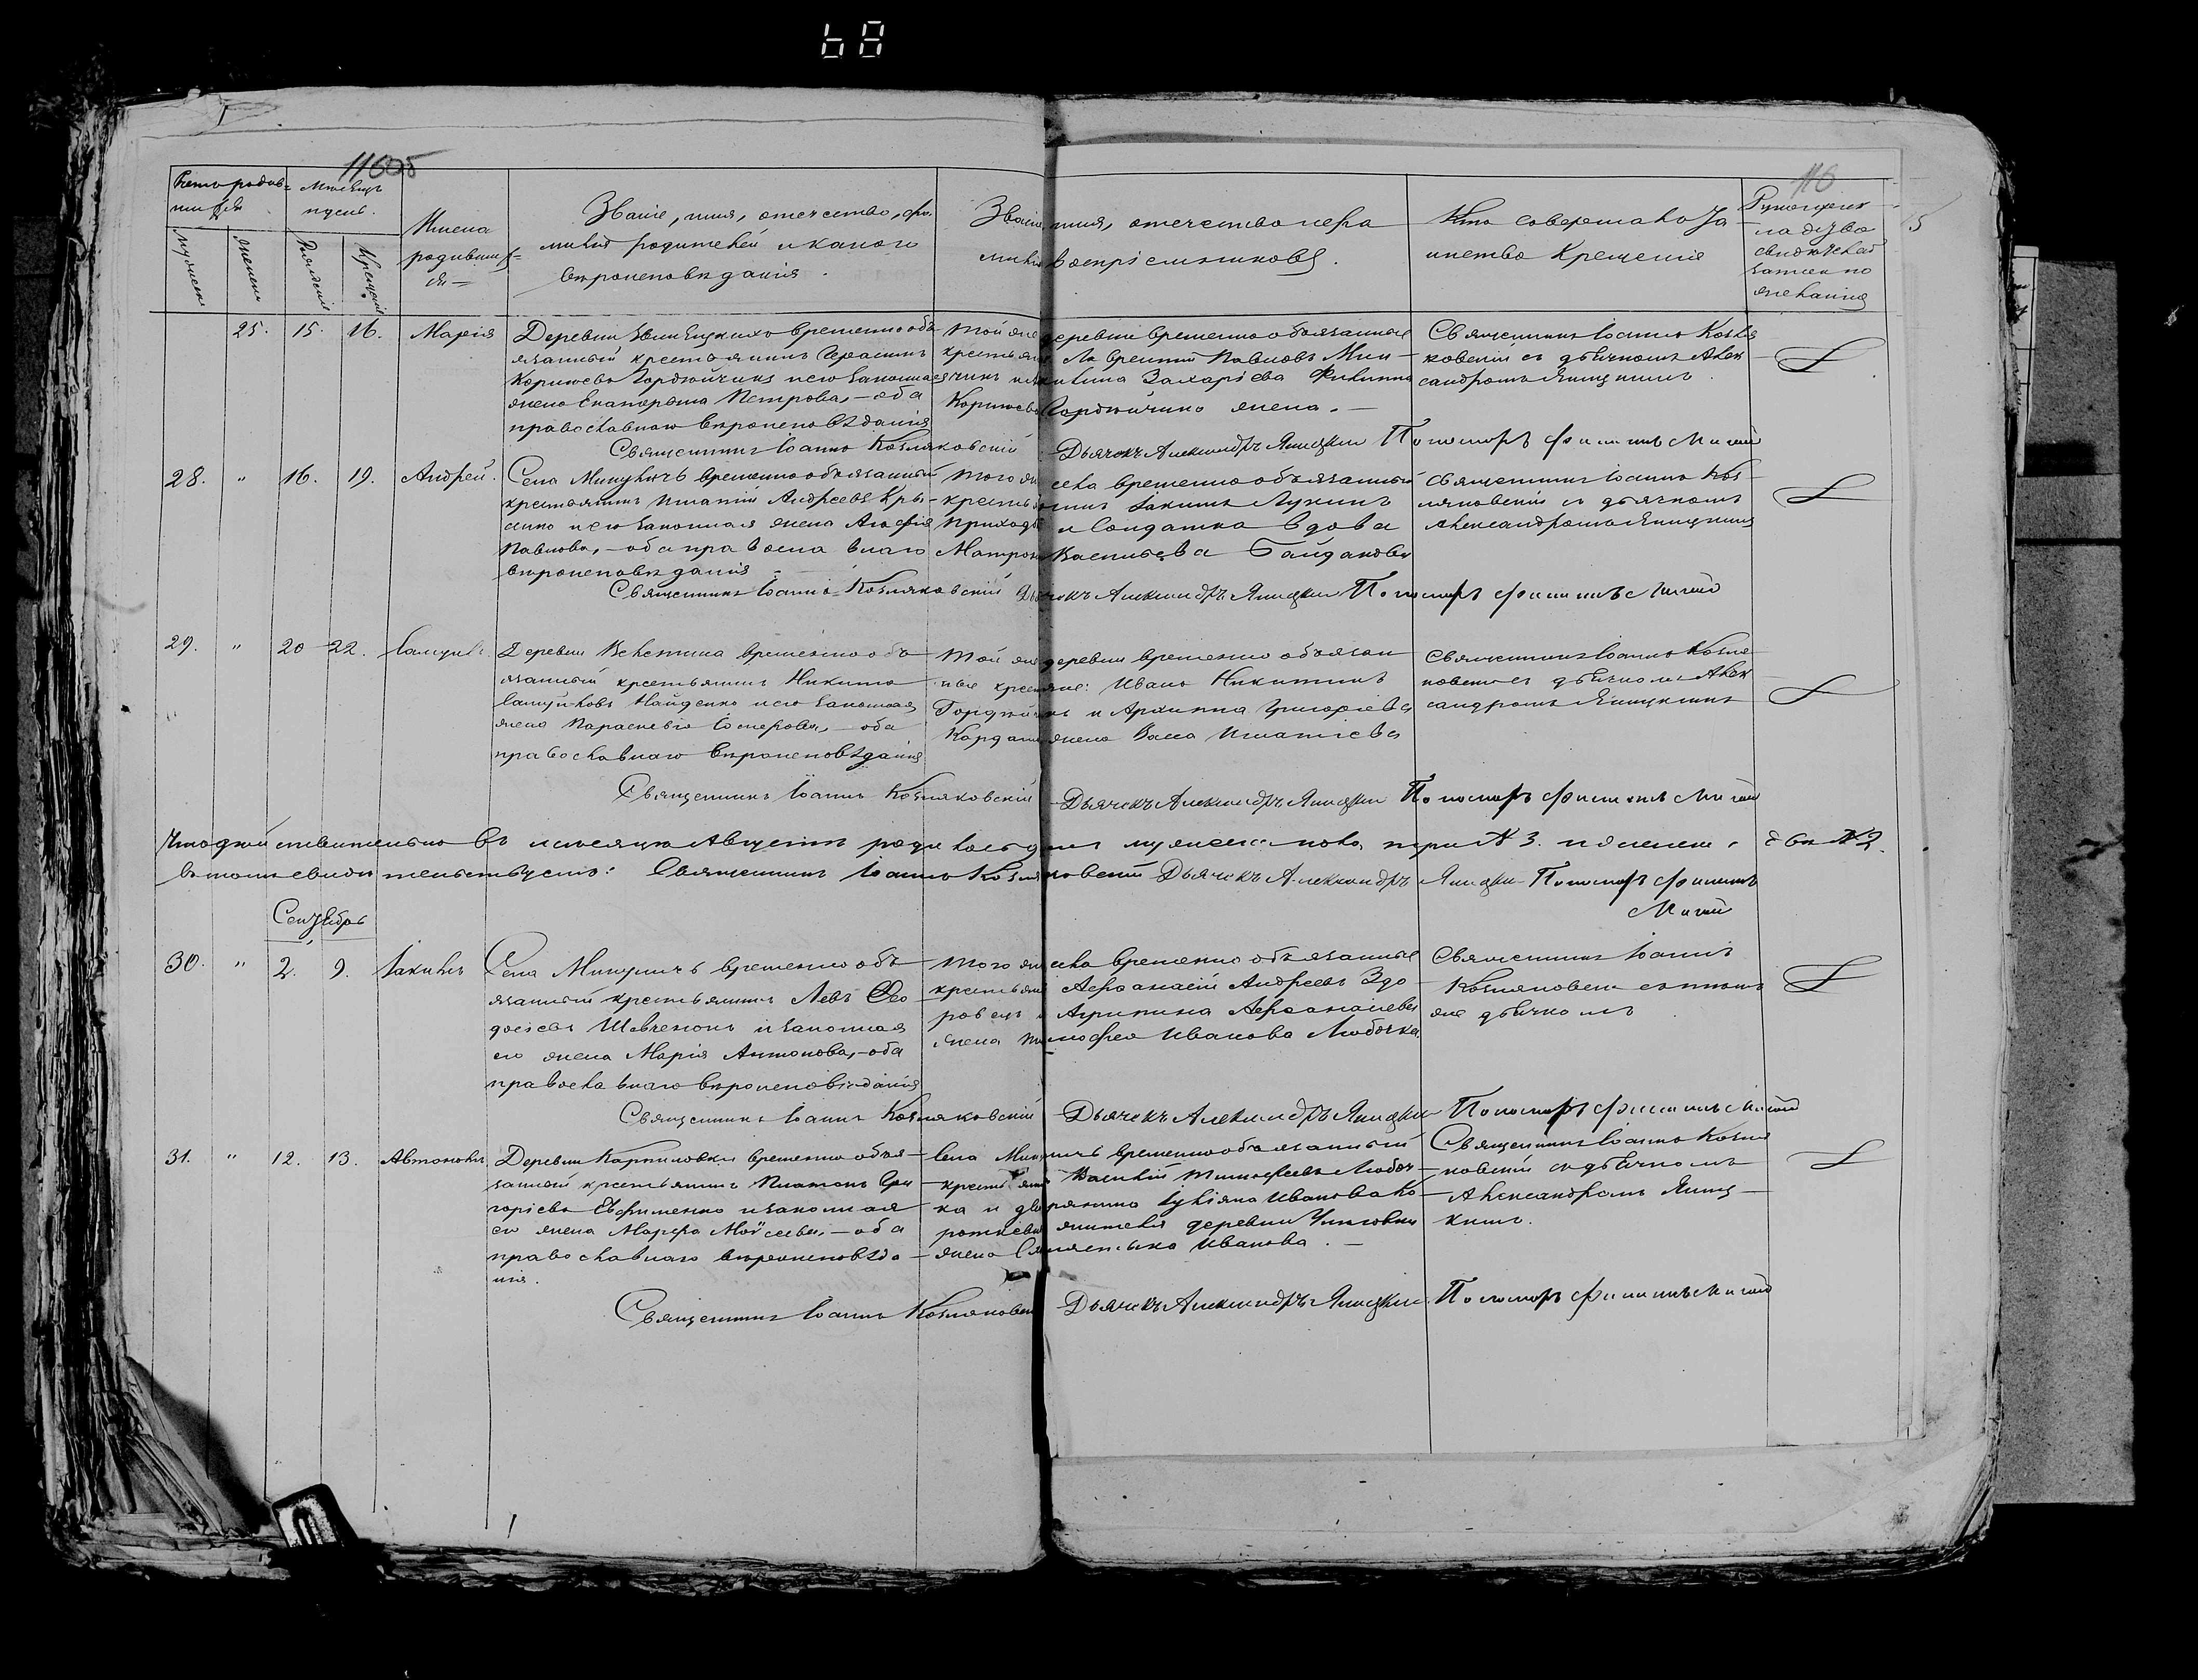 68
116об
116
Счетъ родив-
шихся
мужеска
женска
Мѣсяцъ
и день.
Рожденія
Крещенія
Имена
родивших-
ся
Званіе, имя, отечество, фа-
милія родителей и какого
вѣроисповѣданія.
Званіе, имя, отечество и фа
милія воспріемниковъ.
Кто совершалъ Та
инство Крещенія
Рукоприк
ладство
свидѣтелей
записи по
желанію
25. 15. 16. Марія
Деревни временно обя
занный крестьянинъ Герасимъ
Корнѣевъ Гордѣйчикъ и его законная
жена Екатерина Петрова, - оба
православнаго вѣроисповѣданія
Той же деревни временнообязанные
крестьяне Лаврентій Павловъ
Захаріева Филиппа
Корнѣева Гордѣйчика жена. -
Священникъ Іоаннъ Козля
ковскій съ дьячкомъ Алек
сандромъ Яницкимъ.
Священникъ Іоаннъ Козляковскій Дьячокъ Александръ Яницкій Пономарь
28. " 16. 19. Андрей.
Села Микуличъ временнообязанный
крестьянинъ Игнатій Андреевъ Кры-
и его законная жена Агафія
Павлова, - оба православнаго
вѣроисповѣданія
Того же села временнообязанный
крестьянинъ Іакимъ Лукинъ
и Солдатка вдова
Матрона Васильева Гайдакова
Священникъ Іоаннъ Коз-
ляковскій съ дьячкомъ
Александромъ Яницкимъ
Священникъ Іоаннъ Козляковскій Дьячокъ Александръ Яницкій Пономарь
29. " 20 22. Самуилъ
Деревни временно объ
язанный крестьянинъ Никита
Самуиловъ Найденко и его законная
жена Параскевія - оба
православнаго вѣроисповѣданія
Той же деревни временно обязан
ные крестьяне: Иванъ Никитинъ
и Архиппа Григоріева
жена Васса Игнатіева
Священникъ Іоаннъ Козля
ковскій съ дьячкомъ Алек
сандромъ Яницкимъ
Священникъ Іоаннъ Козляковскій Дьячокъ Александръ Яницкій Пономарь
Что дѣйствительно въ мѣсяцѣ Августѣ родилось мужеска пола три № 3. и женска двѣ № 2.
въ томъ свидѣтельствуемъ: Священникъ Іоаннъ Козляковскій Дьячокъ Александръ Яницкій Пономарь
Сентябрь
30. " 2. 9. Іакимъ
Села Микуличъ временно объ
язанный крестьянинъ Левъ Фео
досіевъ Шевченокъ и законная
его жена Марія Антонова, - оба
православнаго вѣроисповѣданія
Того же села временно обязанные
крестьяне Афанасій Андреевъ Здо
ровецъ и Агрипина Афанасіева
жена Тимофея Иванова Любочка.
Священникъ Іоаннъ
Козляковскій съ тѣмъ
же дьячкомъ
Священникъ Іоаннъ Козляковскій Дьячокъ Александръ Яницкій Пономарь
31. " 12. 13. Автономъ
Деревни Карпиловки временно обя
занный крестьянинъ Платонъ Гри
горіевъ Ефименко и законная
его жена Марфа Моѵсеева, - оба
православнаго вѣроисповѣда
нія.
Села Микуличъ временнообязанный
крестьянинъ Василій Тимофеевъ Любоч-
ка и дворянина Іуліана Иванова Ко-
жителя деревни
жена Иванова. -
Священникъ Іоаннъ Козля
ковскій съ дьячкомъ
Александромъ Яниц-
кимъ.
Священникъ Іоаннъ Козляковскій Дьячокъ Александръ Яницкій Пономарь